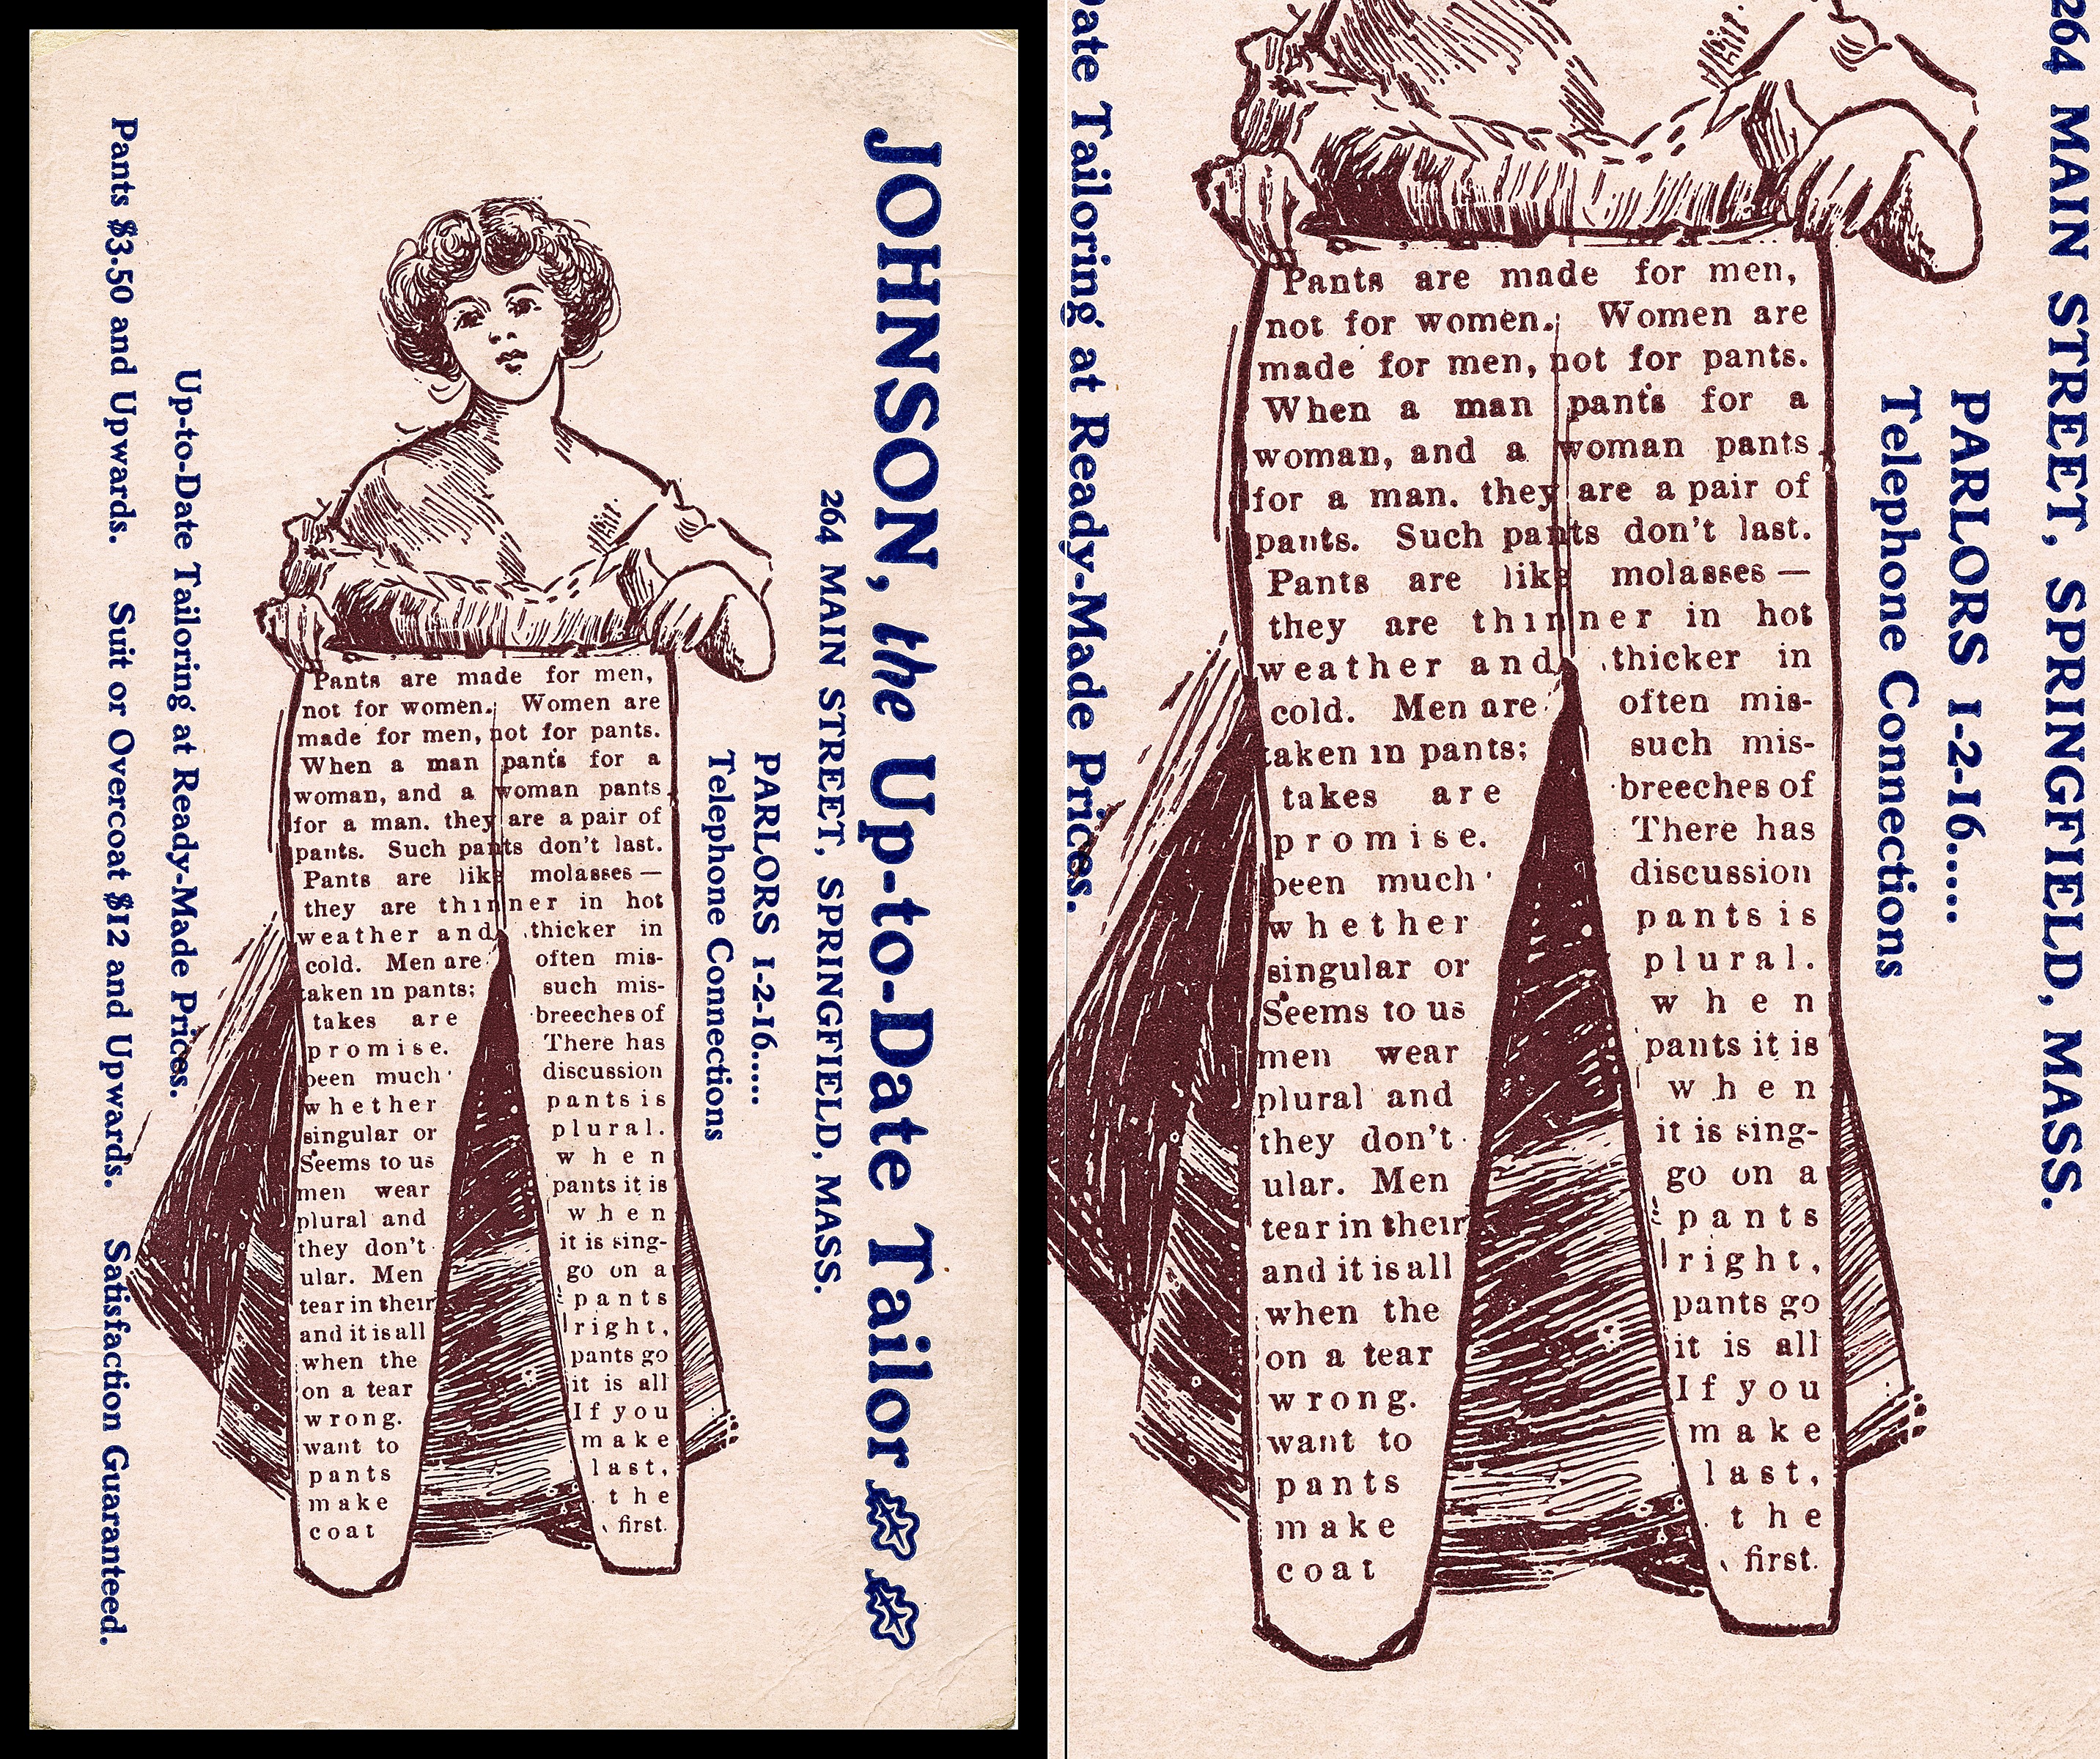 JOHNSON, the Up-to-Date Tailor
264 MAIN STREET, SPRINGFIELD, MASS.
PARLORS 1-2-16.....
Telephone Connections
Pants are made for men,
not for women. Women are
made for men, not for pants.
When a man pants for a
woman, and a woman pants
for a man. they are a pair of
pants. Such pants don't last.
Pants are like molasses—
they are thinner in hot
weather and thicker in
cold. Men are often mis-
taken in pants; such mis-
takes are breeches of
promise. There has
been much discussion
whether pants is
singular or plural.
Seems to us when
men wear pants it is
plural and when
they don't it is sing-
ular. Men go on a
tear in their pants
and it is all right,
when the pants go
on a tear it is all
wrong. If you
want to make
pants last,
make the
coat first.
Up-to-Date Tailoring at Ready-Made Prices.
Pants $3.50 and Upwards. Suit or Overcoat $12 and Upwards. Satisfaction Guaranteed.
264 MAIN STREET, SPRINGFIELD, MASS.
PARLORS 1-2-16.....
Telephone Connections
Pants are made for men,
not for women. Women are
made for men, not for pants.
When a man pants for a
woman, and a woman pants
for a man. they are a pair of
pants. Such pants don't last.
Pants are like molasses—
they are thinner in hot
weather and thicker in
cold. Men are often mis-
taken in pants; such mis-
takes are breeches of
promise. There has
been much discussion
whether pants is
singular or plural.
Seems to us when
men wear pants it is
plural and when
they don't it is sing-
ular. Men go on a
tear in their pants
and it is all right,
when the pants go
on a tear it is all
wrong. If you
want to make
pants last,
make the
coat first.
Date Tailoring at Ready-Made Prices.